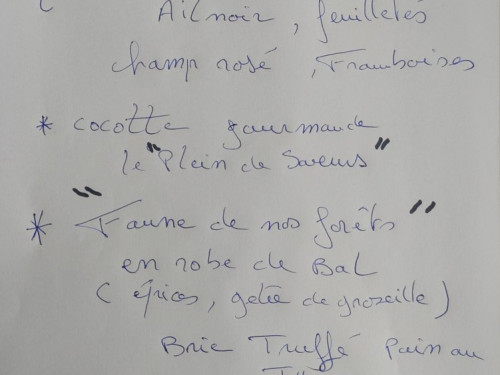 Ail noir, feuilletés
champ rosé, Framboises
* cocotte gourmande
le "Plein de Saveurs"
* "Faune de nos forêts"
en robe de Bal
(épices, gelée de groseille)
Brie Truffé Pain au